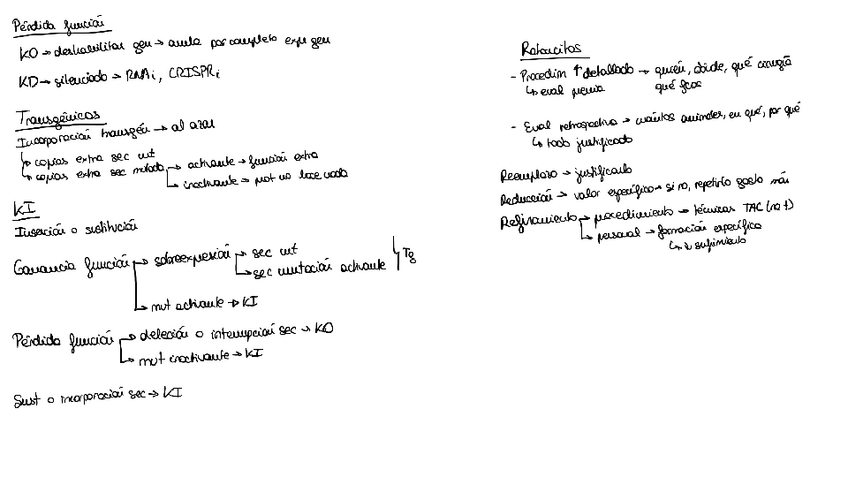 Pérdida función
KO → deshabilitar gen → anula por completo expr gen
KD → silenciado → RNAi, CRISPRi
Transgénicos
Incorporación transgén → al azar
→ copias extra sec wt
→ copias extra sec mutada → activante → función extra
→ inactivante → prot no hace nada
KI
Inserción o sustitución
Ganancia función → sobreexpresión → sec wt
→ sec mutación activante
Tg
→ mut activante → KI
Pérdida función → deleción o interrupción sec → KO
→ mut inactivante → KI
Sust o incorporación sec → KI
Ratoncitos
- Procedim ↑ detallado → quién, dónde, qué cirugía
↳ eval previa qué fcos
- Eval retrospectiva → cuántos animales, en qué, por qué
↳ todo justificado
Reemplazo → justificarlo
Reducción → valor específico → si no, repetirlo gasto más
Refinamiento → procedimiento → técnicas TAC (no †)
→ personal → formación específica
↳ ↓ sufrimiento